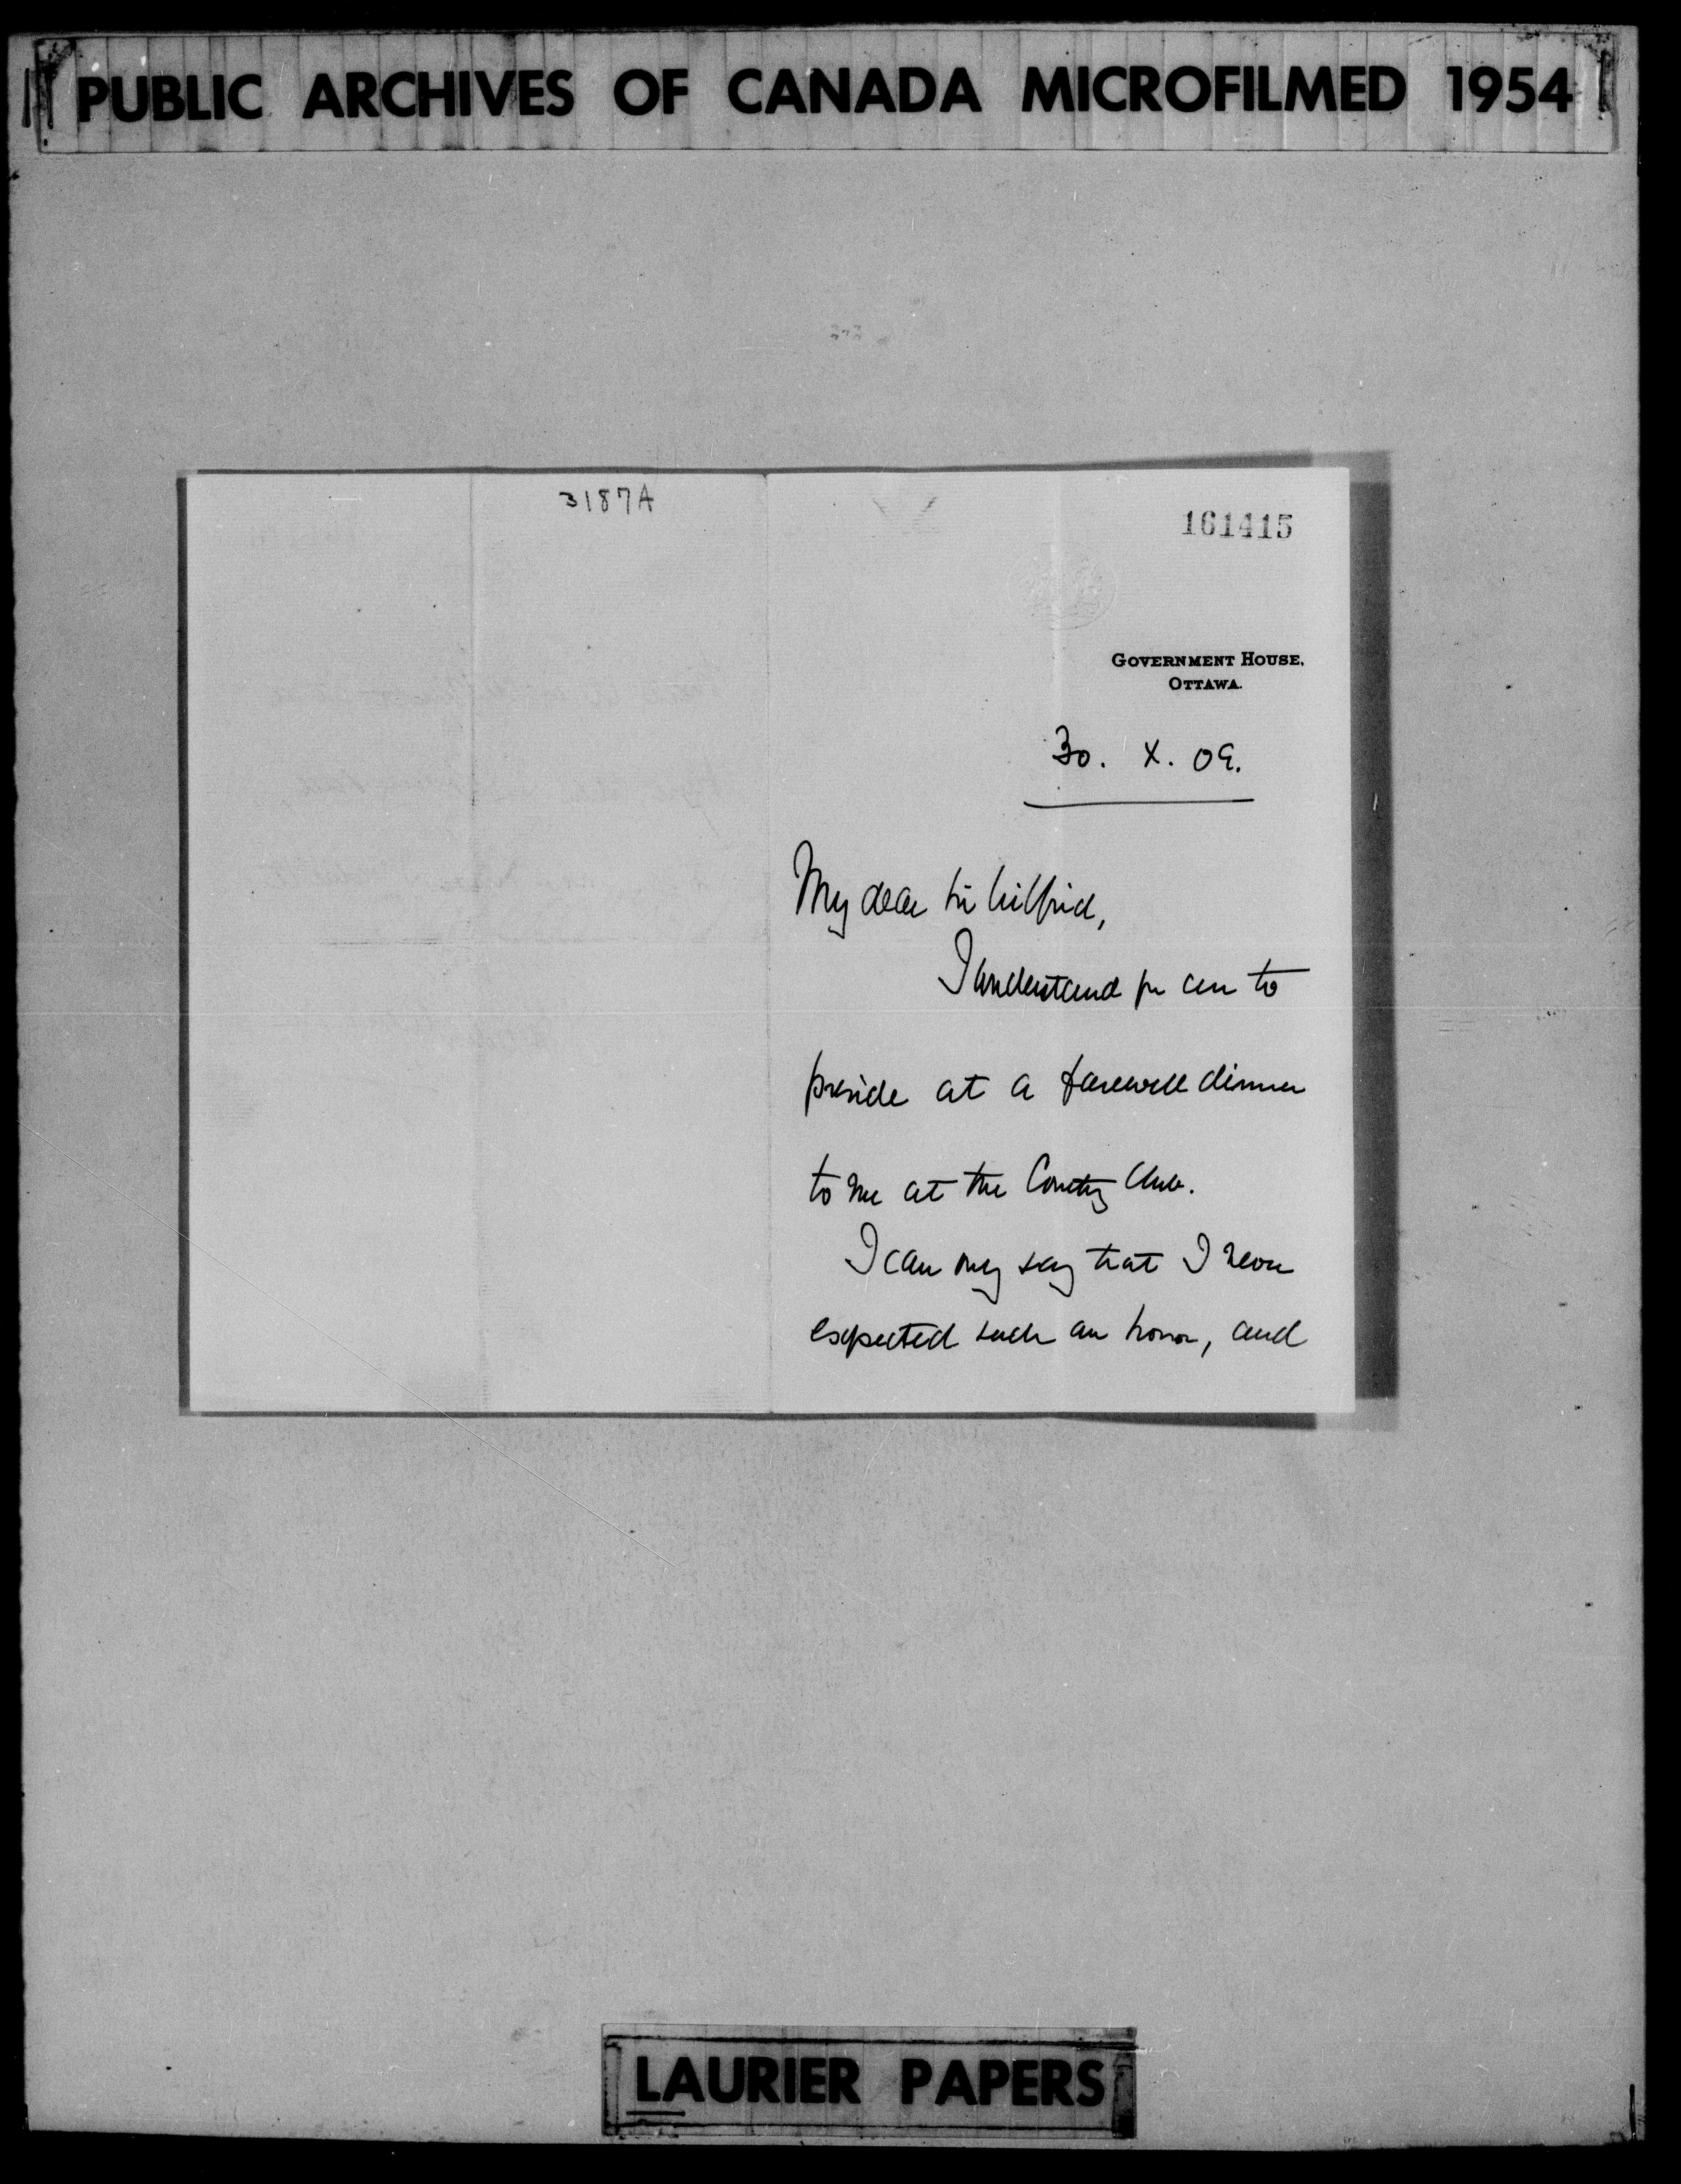 PUBLIC ARCHIVES OF CANADA MICROFILMED 1954
3187A
161415
GOVERNMENT HOUSE,
OTTAWA.
30. X. 09.
My dear Sir Wilfrid,
I understand you are to
preside at a farewell dinner
to me at the Country Club.
I can only say that I never
expected such an honor, and
LAURIER PAPERS